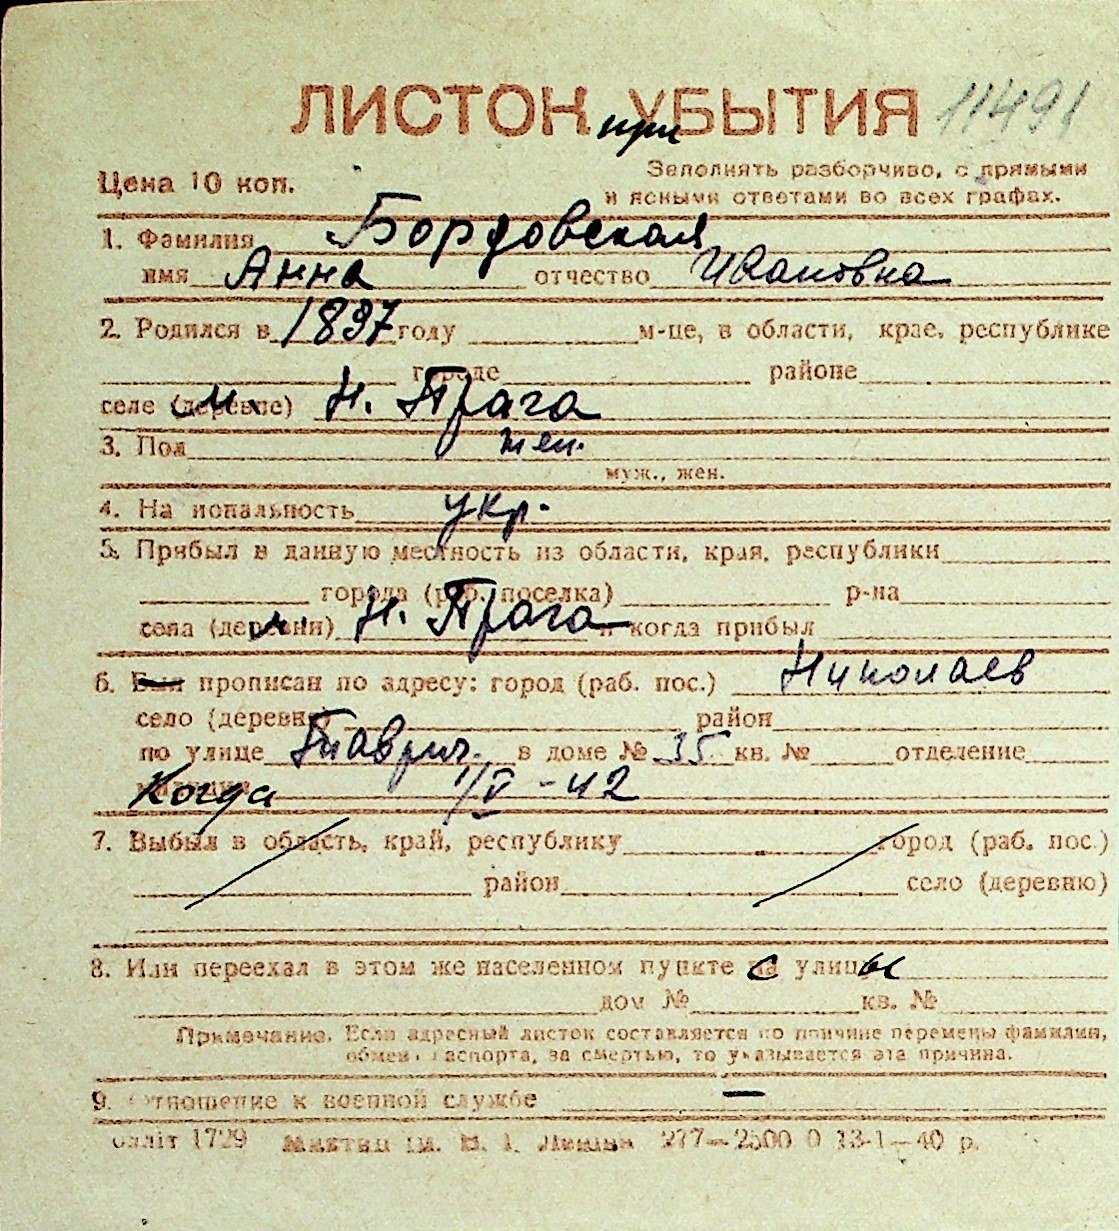 ЛИСТОК прУБЫТИЯ 11491
Цена 10 коп.
Заполнять разборчиво, с прямыми
и ясными ответами во всех графах.
1. Фамилия Бордовская
имя Анна отчество Ивановна
2. Родился в 1897 году м-це, в области, крае, республике
городе районе
селе (деревне) м. Н. Прага
3. Пол жен.
муж., жен.
4. Национальность укр.
5. Прибыл в данную местность из области, края, республики
города (раб. поселка) р-на
села (деревни) м. Н. Прага и когда прибыл
6. Был прописан по адресу: город (раб. пос.) Николаев
село (деревня) район
по улице Таврич. в доме № 35 кв. № отделение
Когда 1/V-42
7. Выбыл в область, край, республику город (раб. пос.)
район село (деревню)
8. Или переехал в этом же населенном пункте с улицы
дом № кв. №
Примечание. Если адресный листок составляется по причине перемены фамилии,
обмена паспорта, за смертью, то указывается эта причина.
9. Отношение к военной службе —
1729 277—2500 0 13-1—40 р.